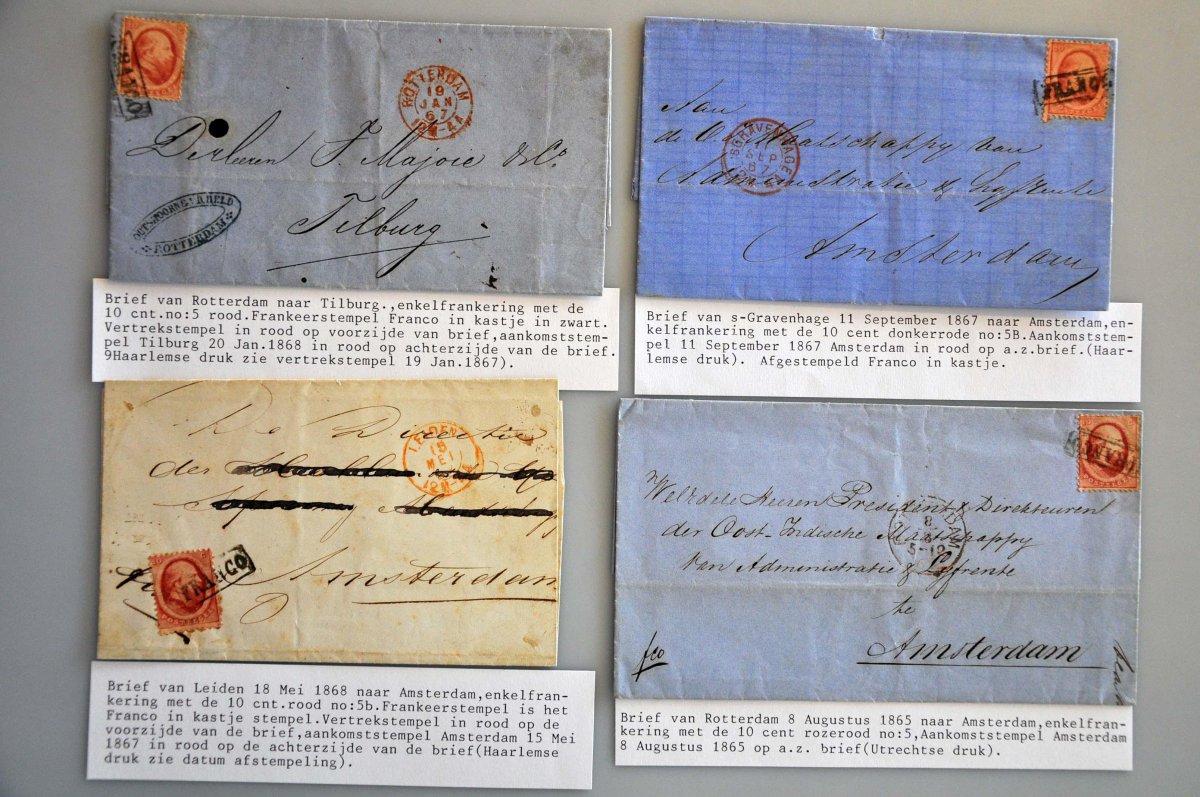 FRANCO
ROTTERDAM
19
JAN
67
12M-4A
De Heeren F. Majoie & Co
Tilburg
ROTTERDAM
Brief van Rotterdam naar Tilburg.,enkelfrankering met de
10 cnt.no:5 rood.Frankeerstempel Franco in kastje in zwart.
Vertrekstempel in rood op voorzijde van brief,aankomststem-
pel Tilburg 20 Jan.1868 in rood op achterzijde van de brief.
9Haarlemse druk zie vertrekstempel 19 Jan.1867).
FRANCO
Aan
de O. I. Maatschappy van
Administratie & Lyfrente
Amsterdam
SGRAVENHAGE
SEP
67
Brief van s-Gravenhage 11 September 1867 naar Amsterdam,en-
kelfrankering met de 10 cent donkerrode no:5B.Aankomststem-
pel 11 September 1867 Amsterdam in rood op a.z.brief.(Haar-
lemse druk). Afgestempeld Franco in kastje.
De Directie
der
Amsterdam
LEIDEN
MEI
FRANCO
POSTZEGEL
Brief van Leiden 18 Mei 1868 naar Amsterdam,enkelfran-
kering met de 10 cnt.rood no:5b.Frankeerstempel is het
Franco in kastje stempel.Vertrekstempel in rood op de
voorzijde van de brief,aankomststempel Amsterdam 15 Mei
1867 in rood op de achterzijde van de brief(Haarlemse
druk zie datum afstempeling).
Weledele Heeren President & Direkteuren
der Oost-Indische Maatschappy
van Administratie & Lyfrente
te
Amsterdam
fco
POSTZEGEL
Brief van Rotterdam 8 Augustus 1865 naar Amsterdam,enkelfran-
kering met de 10 cent rozerood no:5,Aankomststempel Amsterdam
8 Augustus 1865 op a.z. brief(Utrechtse druk).